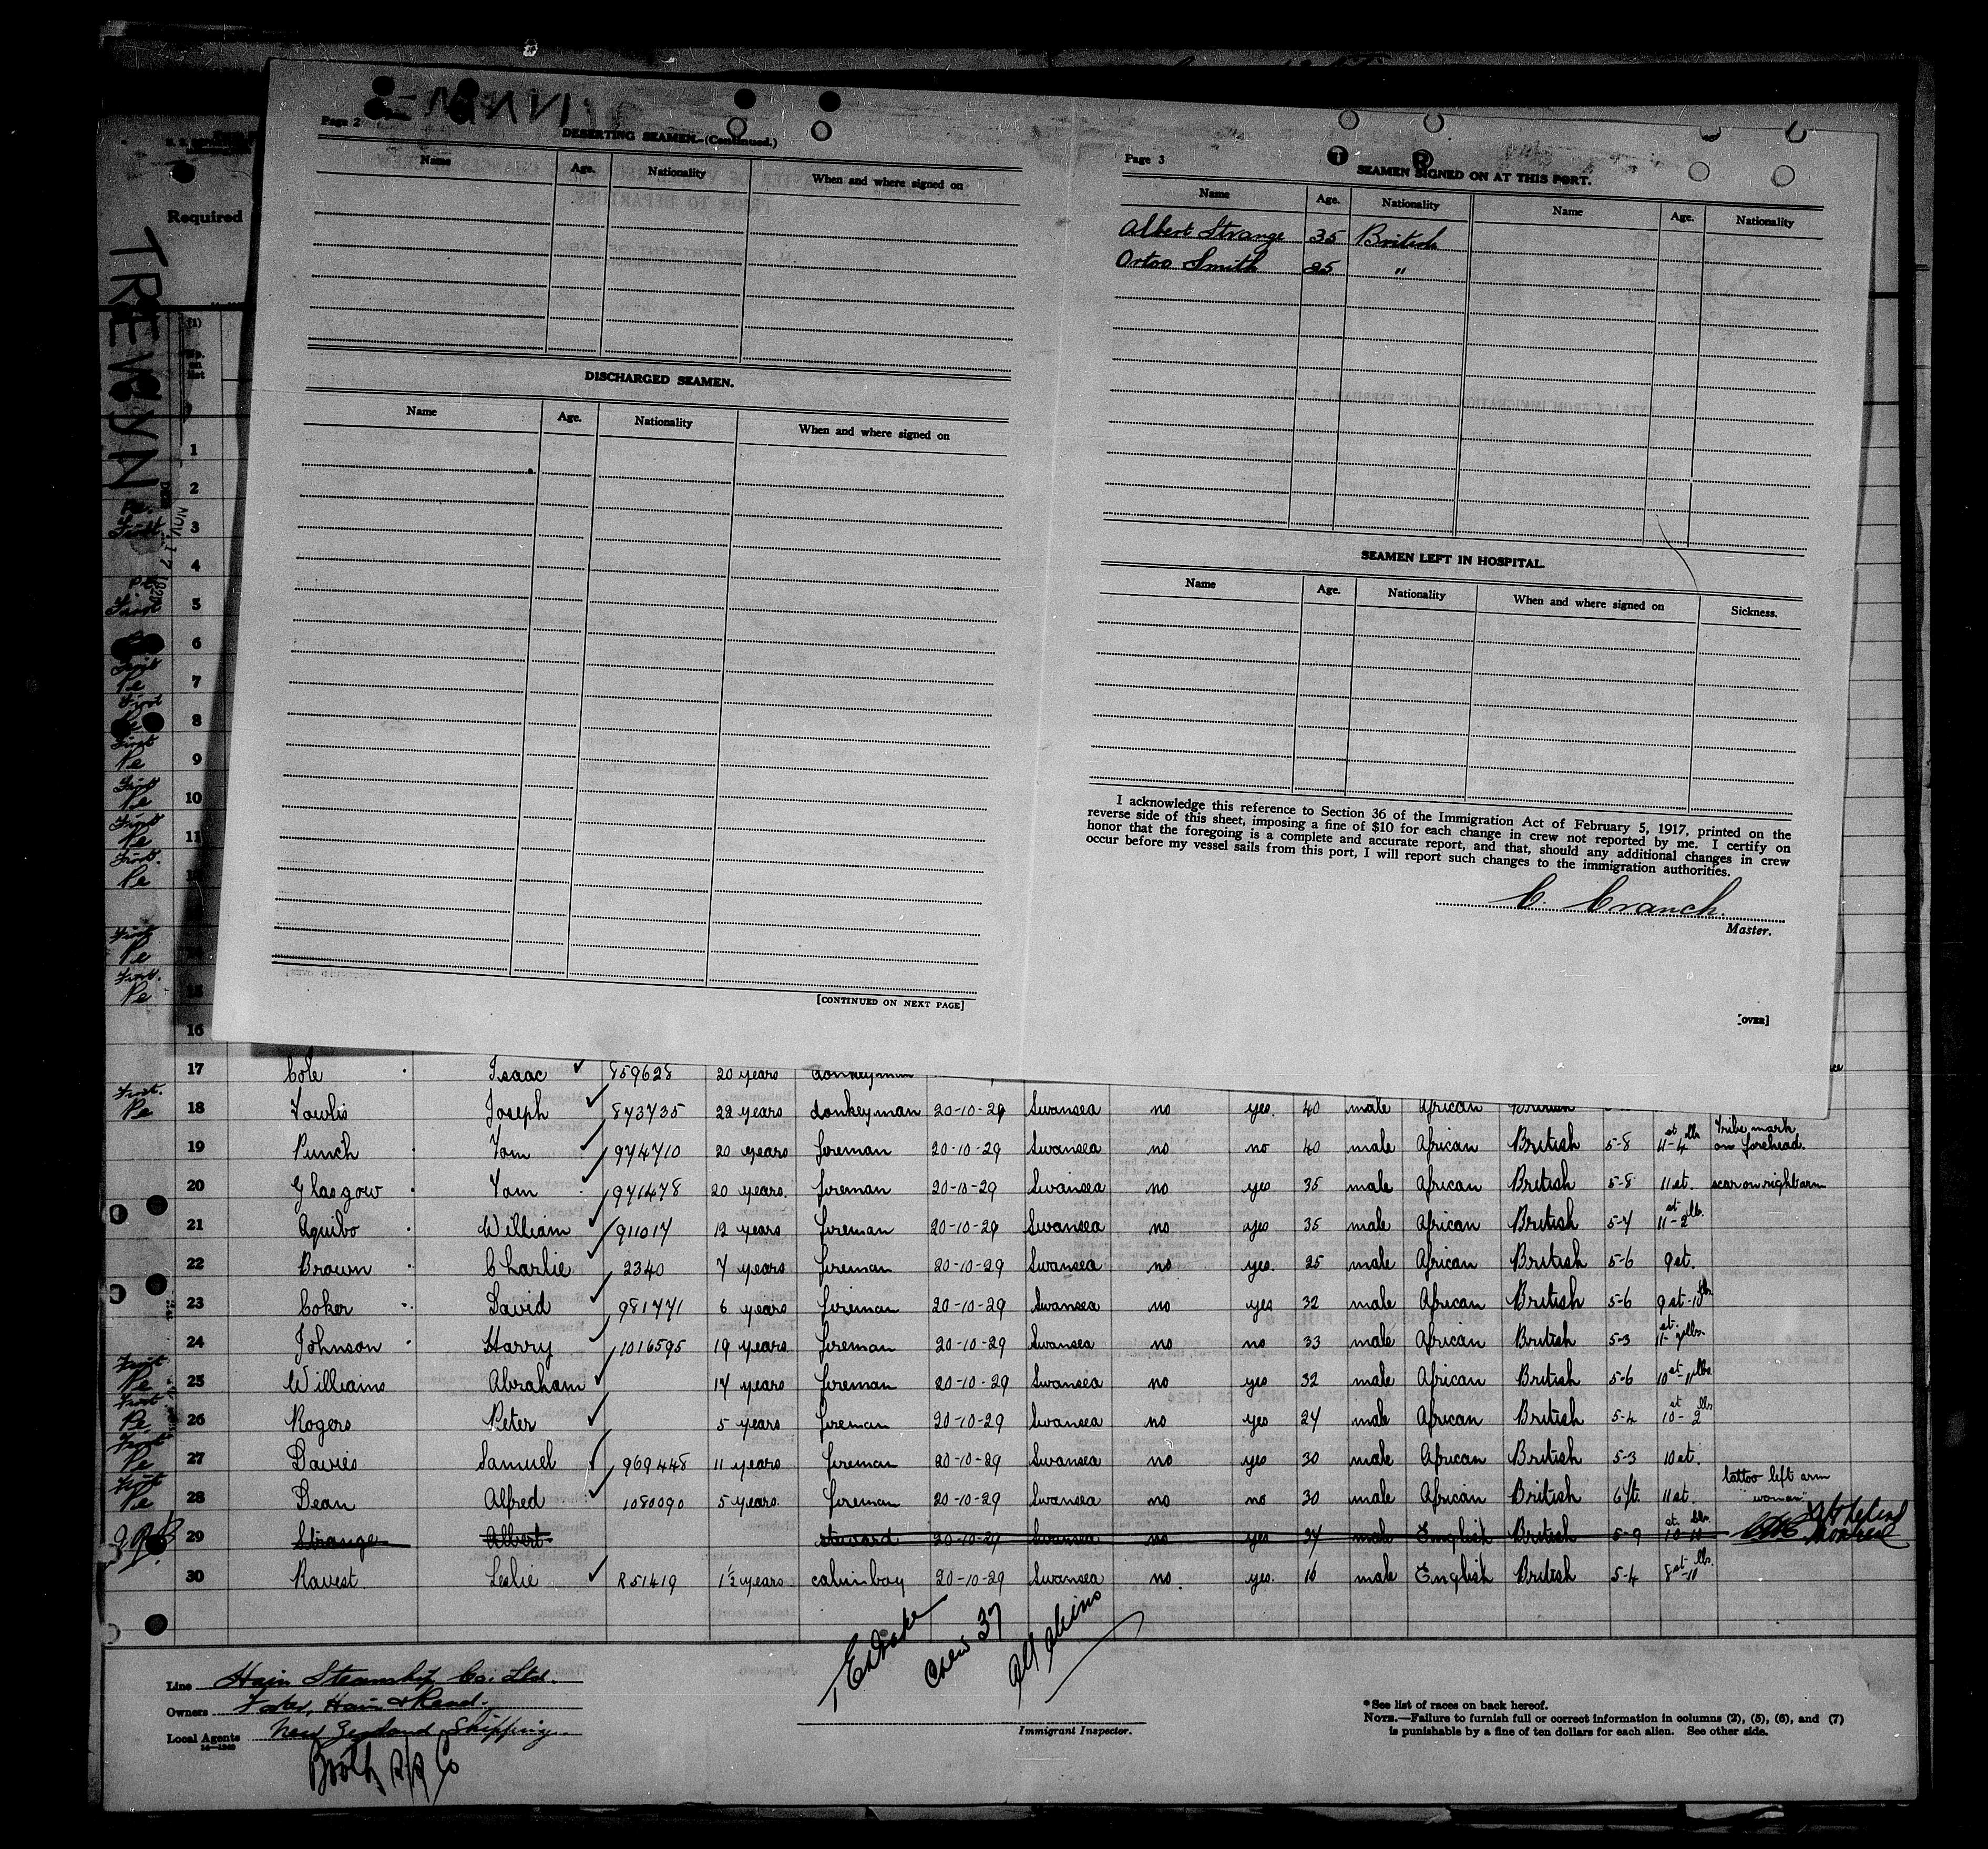 Page 2
DESERTING SEAMEN—(Continued.)
Name Age. Nationality When and where signed on
DISCHARGED SEAMEN.
Name Age. Nationality When and where signed on
[CONTINUED ON NEXT PAGE]
Page 3
SEAMEN SIGNED ON AT THIS PORT.
Name Age. Nationality Name Age. Nationality
Albert Strange 35 British
Smith 25 "
SEAMEN LEFT IN HOSPITAL.
Name Age. Nationality When and where signed on Sickness.
I acknowledge this reference to Section 36 of the Immigration Act of February 5, 1917, printed on the
reverse side of this sheet, imposing a fine of $10 for each change in crew not reported by me. I certify on
honor that the foregoing is a complete and accurate report, and that, should any additional changes in crew
occur before my vessel sails from this port, I will report such changes to the immigration authorities.
C. Cranch.
Master.
[OVER]
Required
TREVEAN
(1)
No.
on
list
1
2
3
4
5
6
7
8
9
10
11
16
17 Cole Isaac 859628 20 years donkeyman
18 Joseph 843435 22 years donkeyman 20-10-29 Swansea no yes. 40 male African British
19 Punch Tom 974710 20 years fireman 20-10-29 Swansea no no 40 male African British 5-8 11st-4lbs Tribe mark on forehead.
20 Glasgow Tom 941478 20 years. fireman 20-10-29 Swansea no yes 35 male African British 5-8 11st. scar on right arm
21 Aquibo William 911017 12 years fireman 20-10-29 Swansea no yes 35 male African British 5-4 11st-2lb.
22 Brown Charlie 2340 7 years fireman 20-10-29 Swansea no yes. 25 male African British 5-6 9st.
23 Coker David 981771 6 years fireman 20-10-29 Swansea no yes 32 male African British 5-6 9st-10lbs
24 Johnson Harry 1016595 19 years fireman 20-10-29 Swansea no no 33 male African British 5-3
25 Williams Abraham 14 years fireman 20-10-29 Swansea no yes 32 male African British 5-6
26 Rogers Peter 5 years fireman 20-10-29 Swansea no yes 24 male African British 5-4 10st-2lbs
27 Davies Samuel 969448 11 years fireman 20-10-29 Swansea no yes 30 male African British 5-3 10st.
28 Dean Alfred 1080090 5 years. fireman 20-10-29 Swansea no no 30 male African British 6ft. 11st. tattoo left arm "woman"
29 Strange Albert steward 20-10-29 Swansea no yes 34 male English British 5-9 10st-10lbs. Montreal
30 Ravest Leslie R51419 1½ years cabin boy 20-10-29 Swansea no. yes. 16 male English British 5-4 8st-10lbs.
Crew 37
Line Hain Steamship Co. Ltd.
Owners Foster, Hain & Read.
Local Agents New Zealand Shipping
Booth S/S Co
Immigrant Inspector.
*See list of races on back hereof.
NOTE.—Failure to furnish full or correct information in columns (2), (5), (6), and (7)
is punishable by a fine of ten dollars for each alien. See other side.